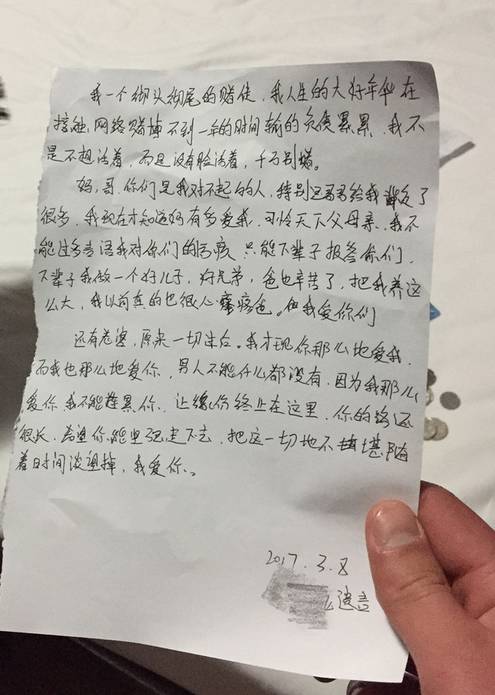 我一个彻头彻尾的赌徒，我人生的大好年华在
接触网络赌博不到一年的时间输的负债累累，我不
是不想活着，而是没有脸活着，千万别赌。
妈，哥，你们是我对不起的人，特别是哥哥给我背负了
很多，我现在才知道妈有多爱我，可怜天下父母亲，我不
能过多言语我对你们的亏欠 只能下辈子报答你们，
下辈子我做一个好儿子，好兄弟，爸也辛苦了，把我养这
么大，我以前真的也很心疼爸。但我爱你们
还有老婆，原来一切生后。我才现你那么地爱我，
而我也那么地爱你，男人不能什么都没有，因为我那么
爱你 我不能连累你，让缘份终止在这里，你的路还
很长，希望你能坚强走下去，把这一切地不堪随
着日时间淡退掉，我爱你。
2017.3.8
遗言